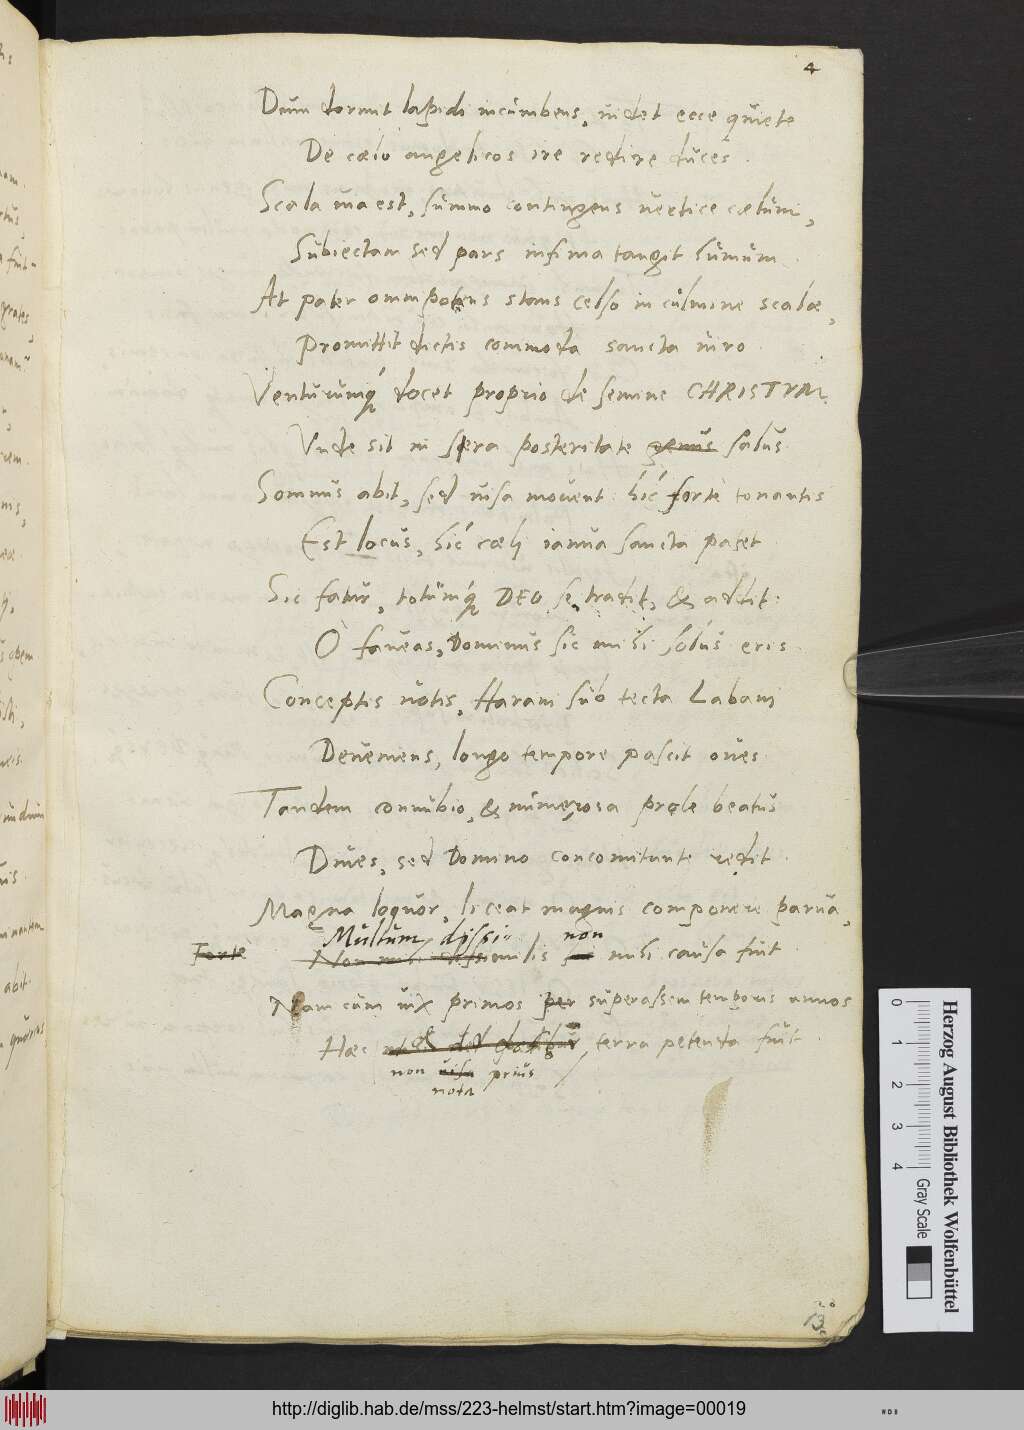 4
Dum dormit lapidi incumbens, uidet ecce quiete
De cælo angelicos ire redire duces.
Scala uia est, summo contingens uertice cælum,
Subiectam sed pars infima tangit humum.
At pater omnipotens stans celso in culmine scalæ,
Promittit dictis commoda sancta uiro.
Venturumq́ docet proprio de semine CHRISTVM,
Vnde sit in sera posteritate salus.
Somnus abit, sed uisa mouent: hić fortè tonantis
Est locus, hić cæli ianua sancta patet
Sic fatur, totumq́ DEO se tradit, & addit:
O faueas, Dominus sic mihi solus eris.
Conceptis uotis, Haram sub tecta Labam
Deueniens, longo tempore pascit oues.
Tandem connubio, & numerosa prole beatus
Diues, sed Domino concomitante redit.
Magna loquor, liceat magnis componere parua,
Multum dissi= non
Fortè Non similis mihi causa fuit
Nam cùm uix primos per superassem temporis annos
Hæc terra petenda fuit.
non uisa prius
nota
13
Herzog August Bibliothek Wolfenbüttel
0 1 2 3 4 Gray Scale
http://diglib.hab.de/mss/223-helmst/start.htm?image=00019
WDB